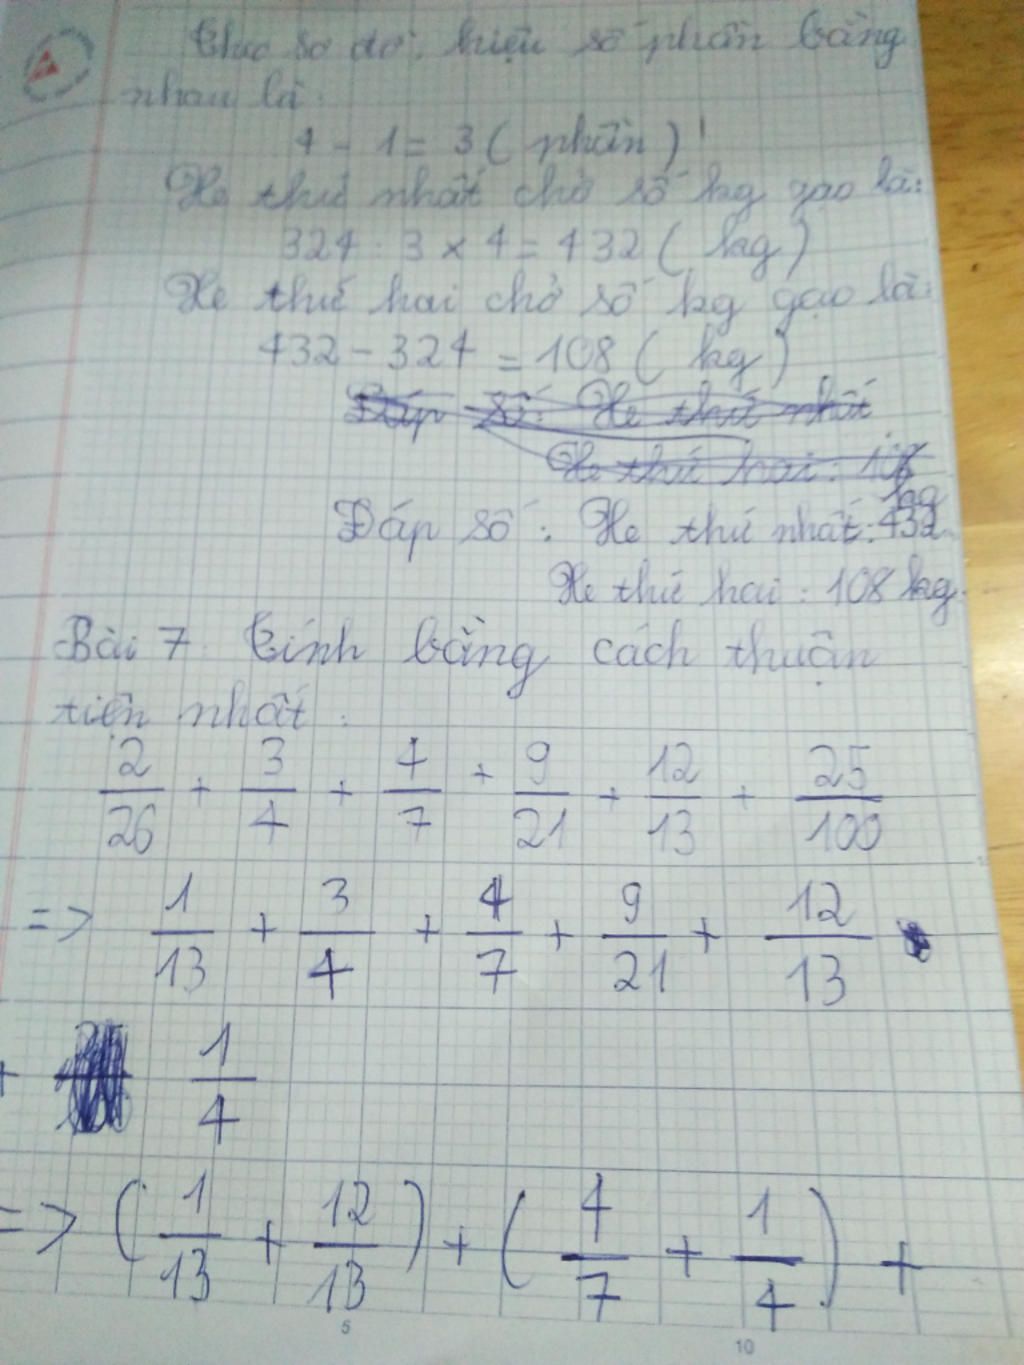 Theo sơ đồ, hiệu số phần bằng
nhau là:
4 - 1 = 3 ( phần )
Xe thứ nhất chở số kg gạo là:
324 : 3 x 4 = 432 ( kg )
Xe thứ hai chở số kg gạo là:
432 - 324 = 108 ( kg )
Đáp số: Xe thứ nhất
Xe thứ hai: 108
kg
Đáp số: Xe thứ nhất: 432
Xe thứ hai: 108 kg.
Bài 7. Tính bằng cách thuận
tiện nhất:
2/26 + 3/4 + 4/7 + 9/21 + 12/13 + 25/100
=> 1/13 + 3/4 + 4/7 + 9/21 + 12/13
+ 1/4
=> (1/13 + 12/13) + (4/7 + 1/4) +
5
10